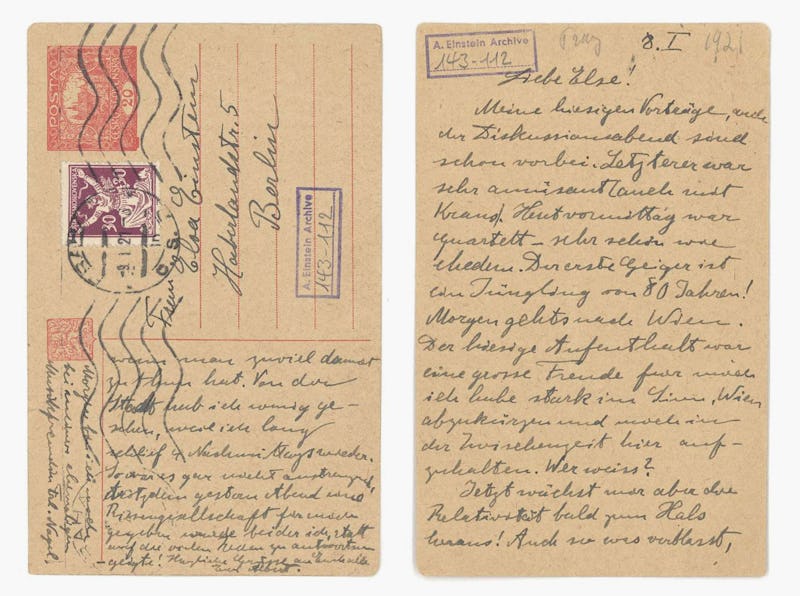 POSTA
ČESKOSLOVENSKÁ
20
30
30
Frau
Elsa Einstein
Haberlandstr. 5
Berlin
A. Einstein Archive
143-112
wenn man zuviel damit
zu thun hat. Von der
Stadt hab ich wenig ge-
sehen, weil ich lang
schlief & Nachmittags wieder.
So war es gar nicht anstrengend,
trotzdem gestern Abend eine
Riesengesellschaft für mich
gegeben wurde bei der ich, statt
auf die vielen Reden zu antworten
geigte! Herzliche Grüsse an Euch alle
Euer Albert.
Morgen bin ich noch
bei meiner ehemaligen
Musikfreundin Frl. Nagel.
A. Einstein Archive
143-112
Prag
8. I 1921
Liebe Else!
Meine hiesigen Vorträge, auch
der Diskussionsabend sind
schon vorbei. Letzterer war
sehr amüsant (auch mit
Kraus). Heut vormittag war
Quartett – sehr schön wie
ehedem. Der erste Geiger ist
ein Jüngling von 80 Jahren!
Morgen gehts nach Wien.
Der hiesige Aufenthalt war
eine grosse Freude für mich
ich habe stark im Sinn, Wien
abzukürzen und mich in
der Zwischenzeit hier auf-
zuhalten. Wer weiss?
Jetzt wächst mir aber die
Relativität bald zum Hals
heraus! Auch so was verblasst,